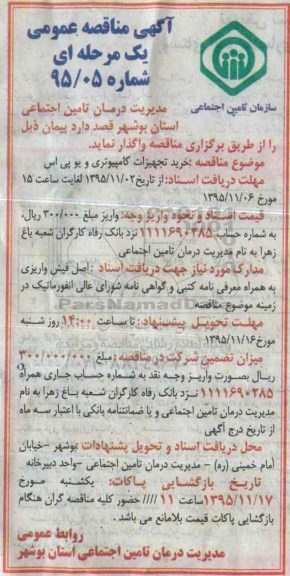 آگهی مناقصه عمومی
یک مرحله ای
شماره ۹۵/۰۵
سازمان تامین اجتماعی
مدیریت درمان تامین اجتماعی
استان بوشهر قصد دارد پیمان ذیل
را از طریق برگزاری مناقصه واگذار نماید.
موضوع مناقصه :خرید تجهیزات کامپیوتری و یو پی اس
مهلت دریافت اسناد: از تاریخ۱۳۹۵/۱۱/۰۲ لغایت ساعت ۱۵
مورخ ۱۳۹۵/۱۱/۰۶
قیمت اسناد و نحوه واریز وجه: واریز مبلغ ۳۰۰/۰۰۰ ریال،
به شماره حساب ۱۱۱۱۶۹۰۳۸۵ نزد بانک رفاه کارگران شعبه باغ
زهرا به نام مدیریت درمان تامین اجتماعی
مدارک مورد نیاز جهت دریافت اسناد :اصل فیش واریزی
به همراه معرفی نامه کتبی و گواهی نامه شورای عالی انفورماتیک در
زمینه موضوع مناقصه
مهلت تحویل پیشنهاد: تا ساعت ۱۴:۰۰ روز شنبه
مورخ۱۳۹۵/۱۱/۱۶
میزان تضمین شرکت در مناقصه :مبلغ ۳۰۰/۰۰۰/۰۰۰
ریال بصورت واریز وجه نقد به شماره حساب جاری همراه
۱۱۱۱۶۹۰۳۸۵ نزد بانک رفاه کارگران شعبه باغ زهرا به نام
مدیریت درمان تامین اجتماعی و یا ضمانتنامه بانکی با اعتبار سه ماه
از تاریخ درج آگهی
محل دریافت اسناد و تحویل پشتهادات :بوشهر -خیابان
امام خمینی (ره) – مدیریت درمان تامین اجتماعی -واحد دبیرخانه
تاریخ بازگشایی پاکات: یکشنبه مورخ
۱۳۹۵/۱۱/۱۷ساعت ۱۱ //// حضور کلیه مناقصه گران هنگام
بازگشایی پاکات قیمت بلامانع می باشد .
روابط عمومی
مدیریت درمان تامین اجتماعی استان بوشهر